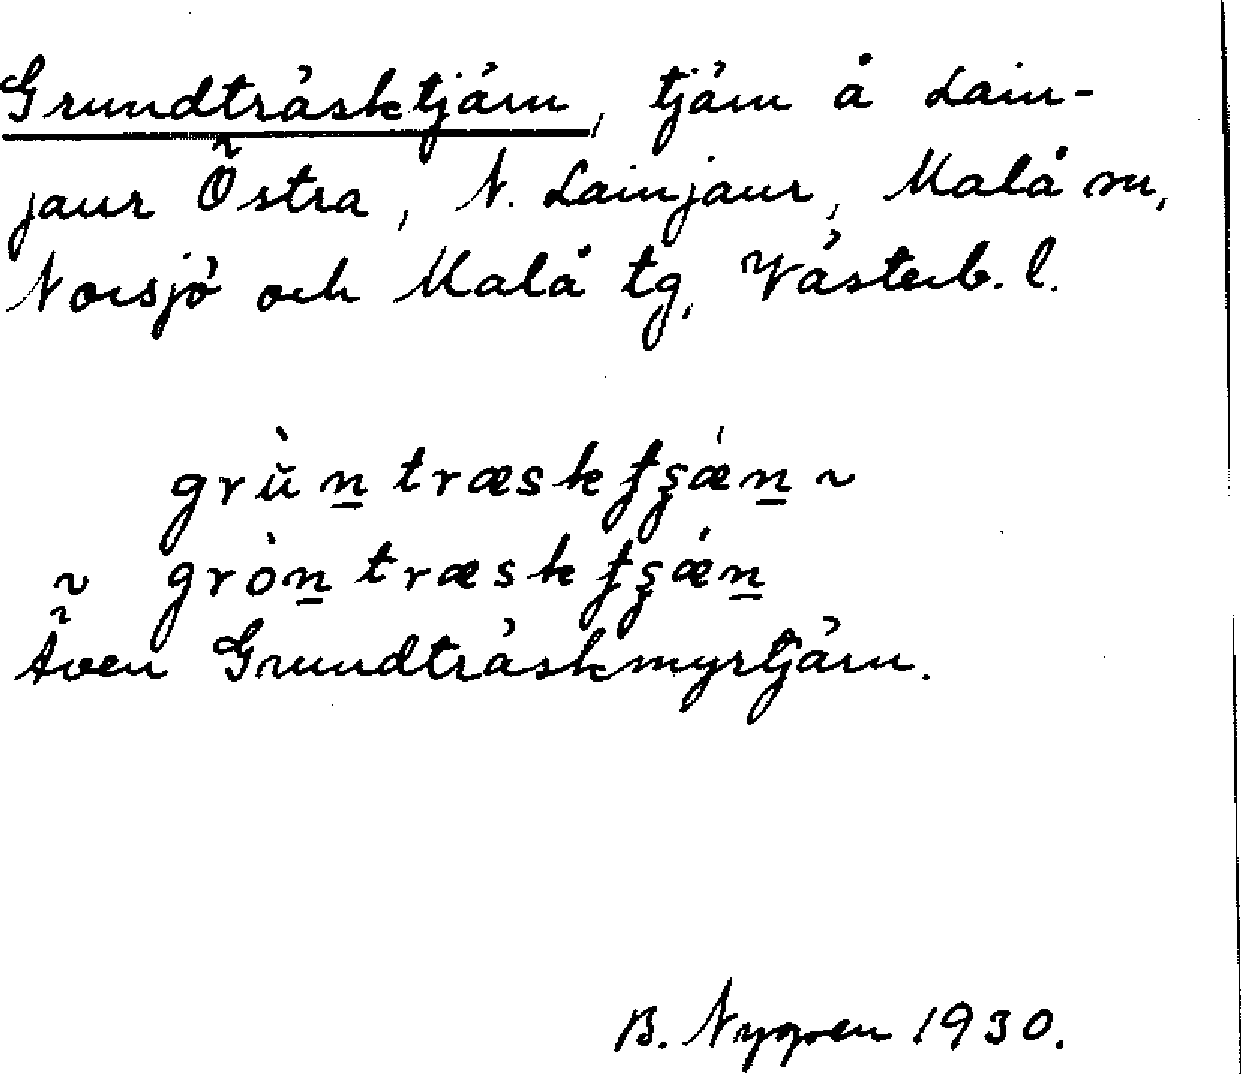 Grundträsktjärn, tjärn å Lain-
jaur Östra, N. Lainjaur, Malå sn,
Norsjö och Malå tg, Västerb. l.
grù̆n̠træskt̠s̠ǽn̠ ~
~ gròn̠træskt̠s̠ǽn̠
Även Grundträskmyrtjärn.
B. Nygren 1930.